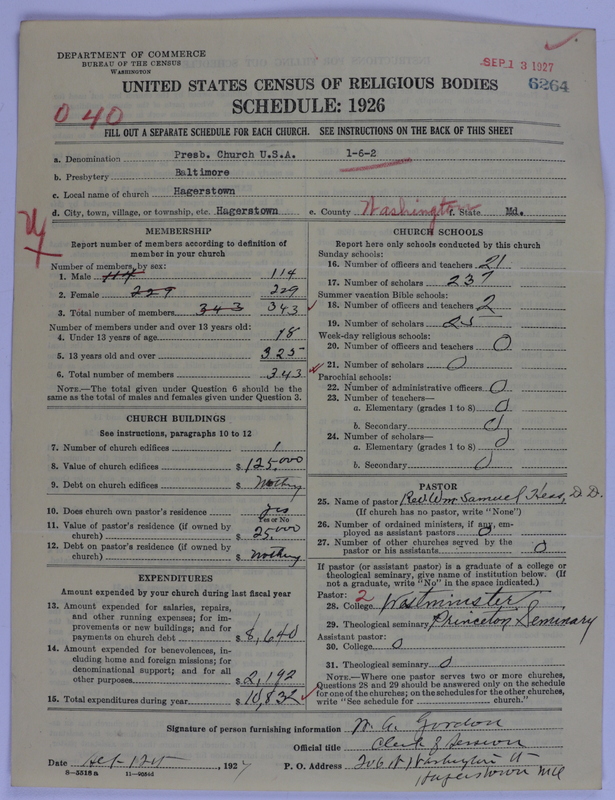 DEPARTMENT OF COMMERCE
BUREAU OF THE CENSUS
WASHINGTON
SEP 13 1927
6264
UNITED STATES CENSUS OF RELIGIOUS BODIES
SCHEDULE: 1926
040
FILL OUT A SEPARATE SCHEDULE FOR EACH CHURCH. SEE INSTRUCTIONS ON THE BACK OF THIS SHEET
a. Denomination Presb. Church U.S.A. 1-6-2
b. Presbytery Baltimore
c. Local name of church Hagerstown
d. City, town, village, or township, etc. Hagerstown e. County Washington f. State Md.
MEMBERSHIP
Report number of members according to definition of
member in your church
Number of members, by sex:
1. Male 114 114
2. Female 229 229
3. Total number of members 343 343
Number of members under and over 13 years old:
4. Under 13 years of age 18
5. 13 years old and over 325
6. Total number of members 343
NOTE.—The total given under Question 6 should be
same as the total of males and females given under Question 3.
CHURCH BUILDINGS
See instructions, paragraphs 10 to 12
7. Number of church edifices 1
8. Value of church edifices $125,000
9. Debt on church edifices $ Nothing
10. Does church own pastor's residence yes
Yes or No
11. Value of pastor's residence (if owned by
church) $ 25,000
12. Debt on pastor's residence (if owned by
church) $ Nothing
EXPENDITURES
Amount expended by your church during last fiscal year
13. Amount expended for salaries, repairs,
and other running expenses; for im-
provements or new buildings; and for
payments on church debt $8,640
14. Amount expended for benevolences, in-
cluding home and foreign missions; for
denominational support; and for all
other purposes $2,192
15. Total expenditures during year $10,832
CHURCH SCHOOLS
Report here only schools conducted by this church
Sunday schools:
16. Number of officers and teachers 21
17. Number of scholars 237
Summer vacation Bible schools:
18. Number of officers and teachers 2
19. Number of scholars 25
Week-day religious schools:
20. Number of officers and teachers 0
21. Number of scholars 0
Parochial schools:
22. Number of administrative officers 0
23. Number of teachers—
a. Elementary (grades 1 to 8) 0
b. Secondary 0
24. Number of scholars—
a. Elementary (grades 1 to 8) 0
b. Secondary 0
PASTOR
25. Name of pastor Rev. Wm Samuel Hess, D.D.
(If church has no pastor, write "None")
26. Number of ordained ministers, if any, em-
ployed as assistant pastors 0
27. Number of other churches served by the
pastor or his assistants 0
If pastor (or assistant pastor) is a graduate of a college or
theological seminary, give name of institution below. (If
not a graduate, write "No" in the space indicated.)
Pastor: 2
28. College Westminster
29. Theological seminary Princeton Seminary
Assistant pastor:
30. College 0
31. Theological seminary 0
NOTE.—Where one pastor serves two or more churches,
Questions 28 and 29 should be answered only on the schedule
for one of the churches; on the schedules for the other churches,
write "See schedule for church."
Signature of person furnishing information W. G. Gordon
Official title Clerk of Session
Date Sept 12th, 1927 P. O. Address 206 W Washington St
Hagerstown Md
8—5518a 11—9554d